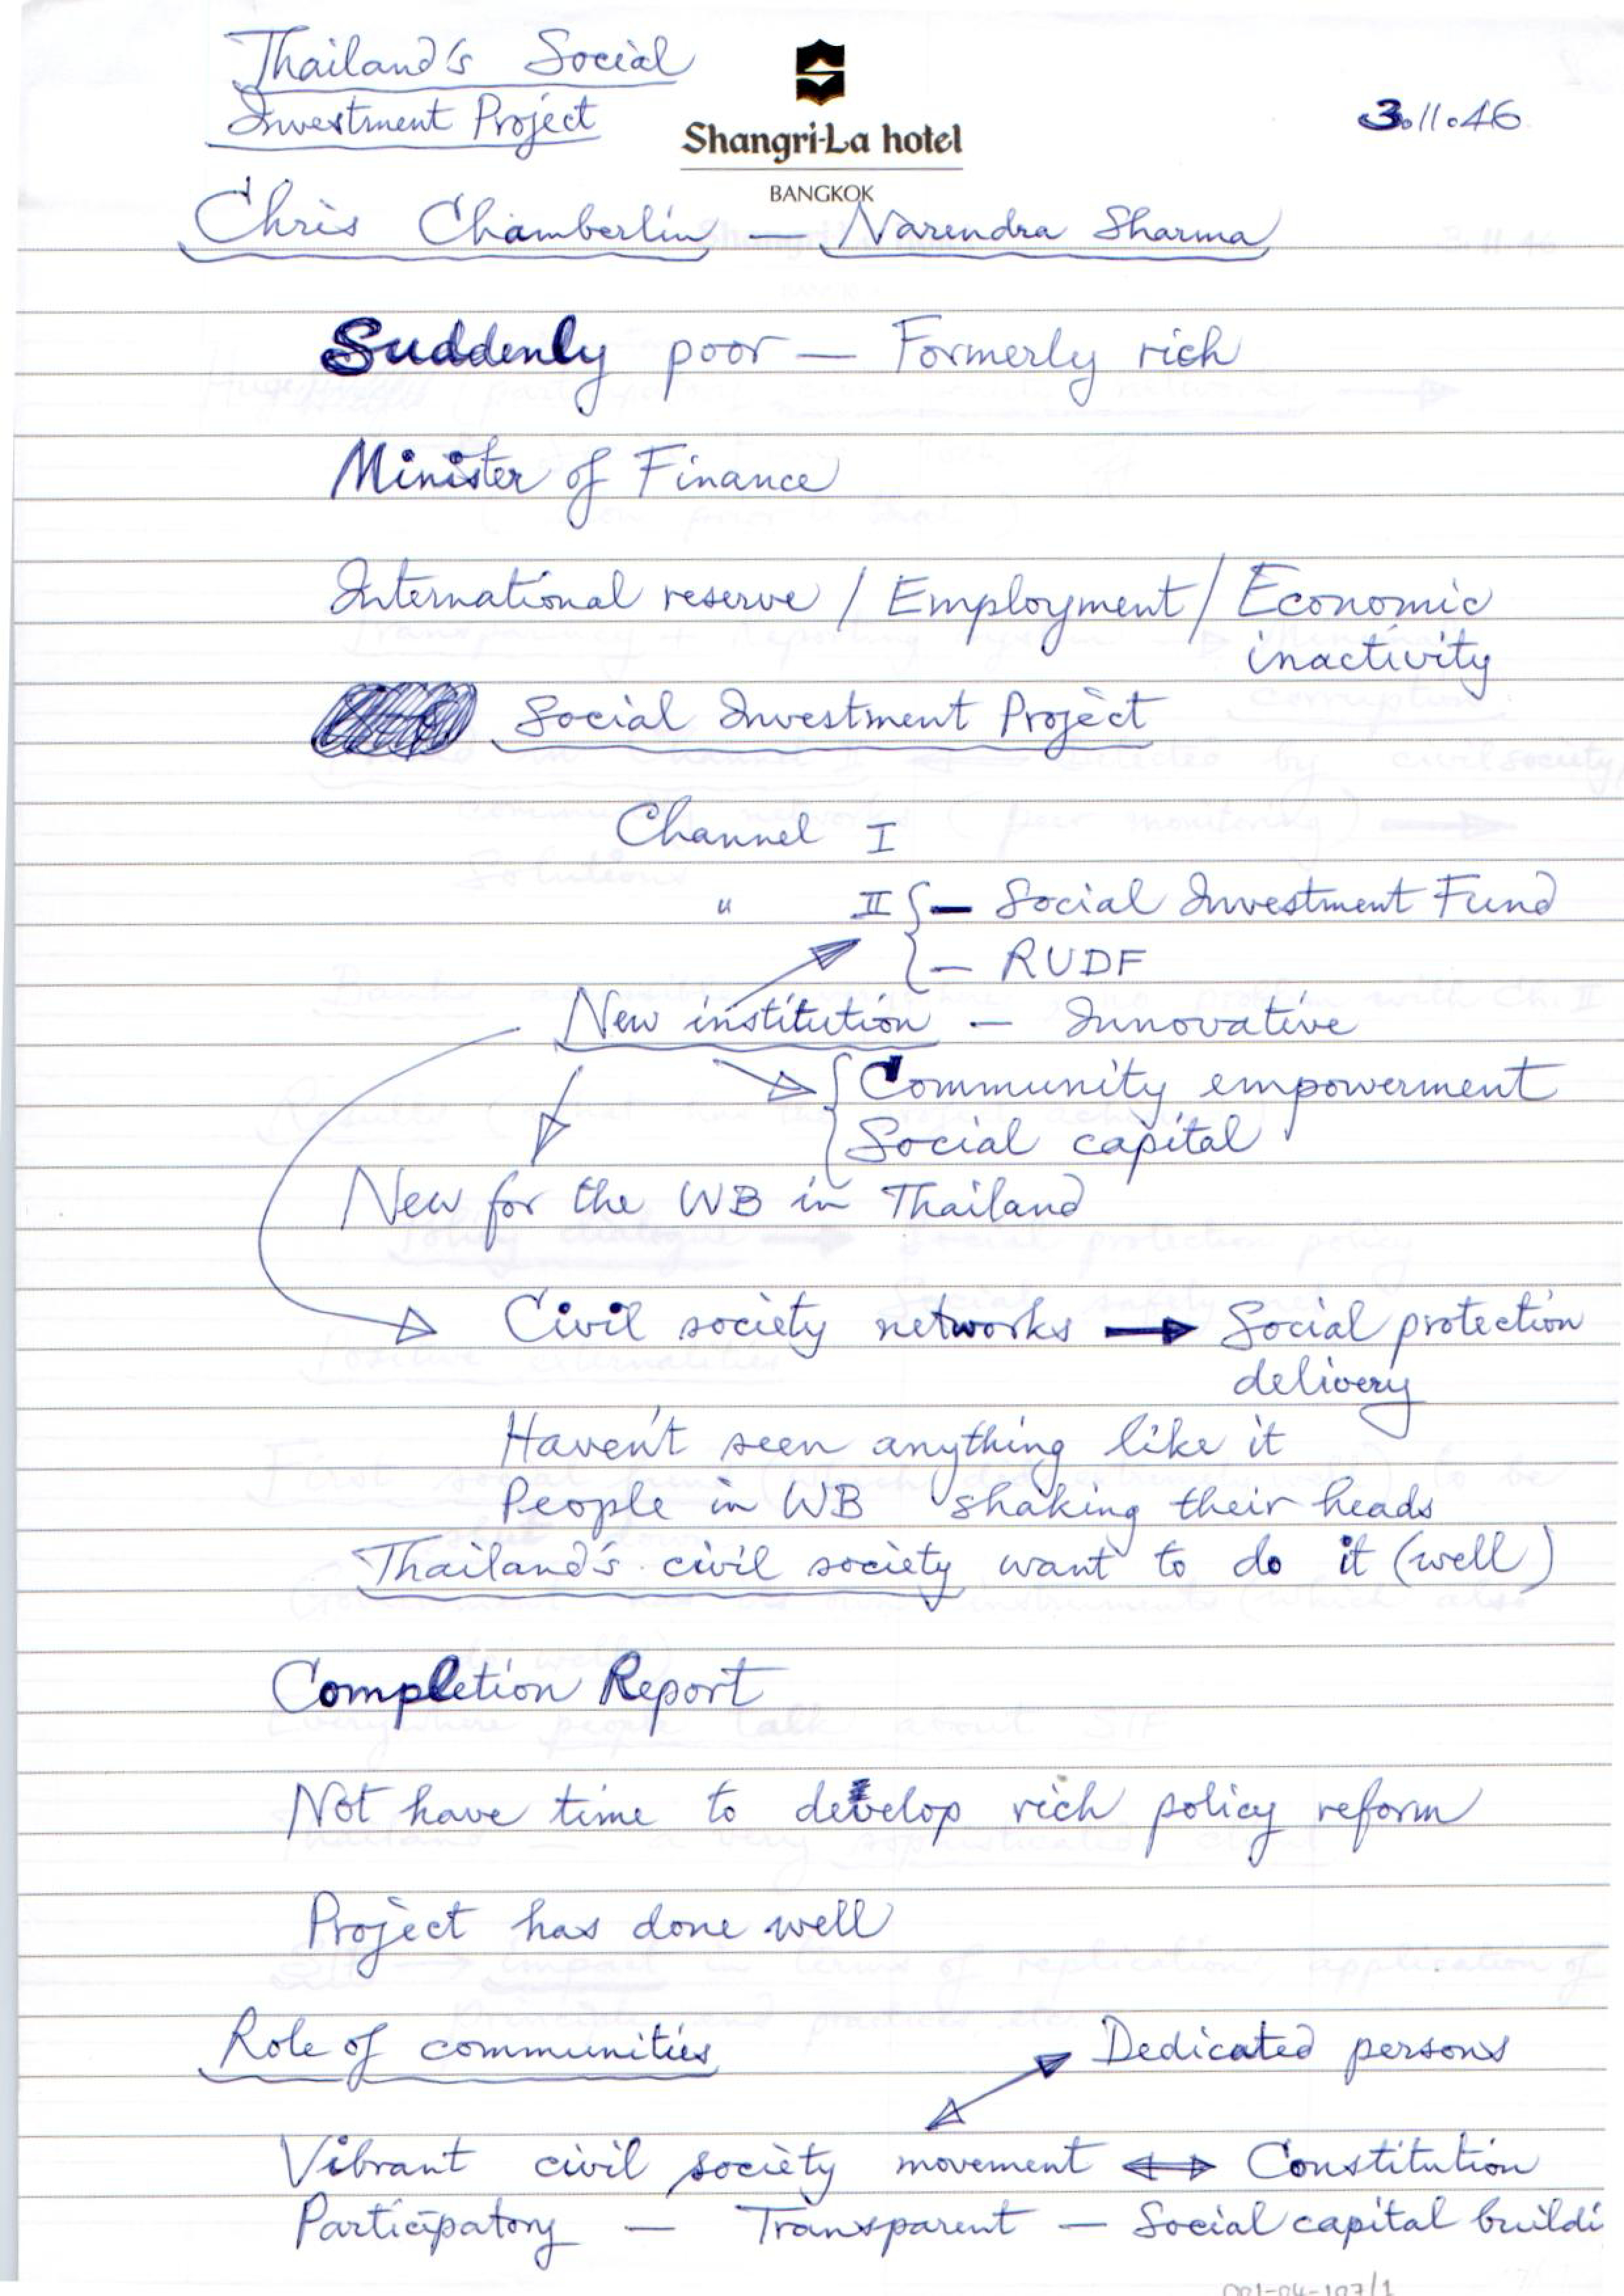 Thailand's Social
Investment Project
Shangri-La hotel
BANGKOK
3.11.46
Chris Chamberlin — Narendra Sharma
Suddenly poor — Formerly rich
Minister of Finance
International reserve / Employment / Economic
inactivity
Social Investment Project
Channel I
" II { — Social Investment Fund
— RUDF
New institution — Innovative
{ Community empowerment
Social capital
New for the WB in Thailand
Civil society networks → Social protection
delivery
Haven't seen anything like it
People in WB shaking their heads
Thailand's civil society want to do it (well)
Completion Report
Not have time to develop rich policy reform
Project has done well
Role of communities
Dedicated persons
Vibrant civil society movement ↔ Constitution
Participatory — Transparent — Social capital buildi